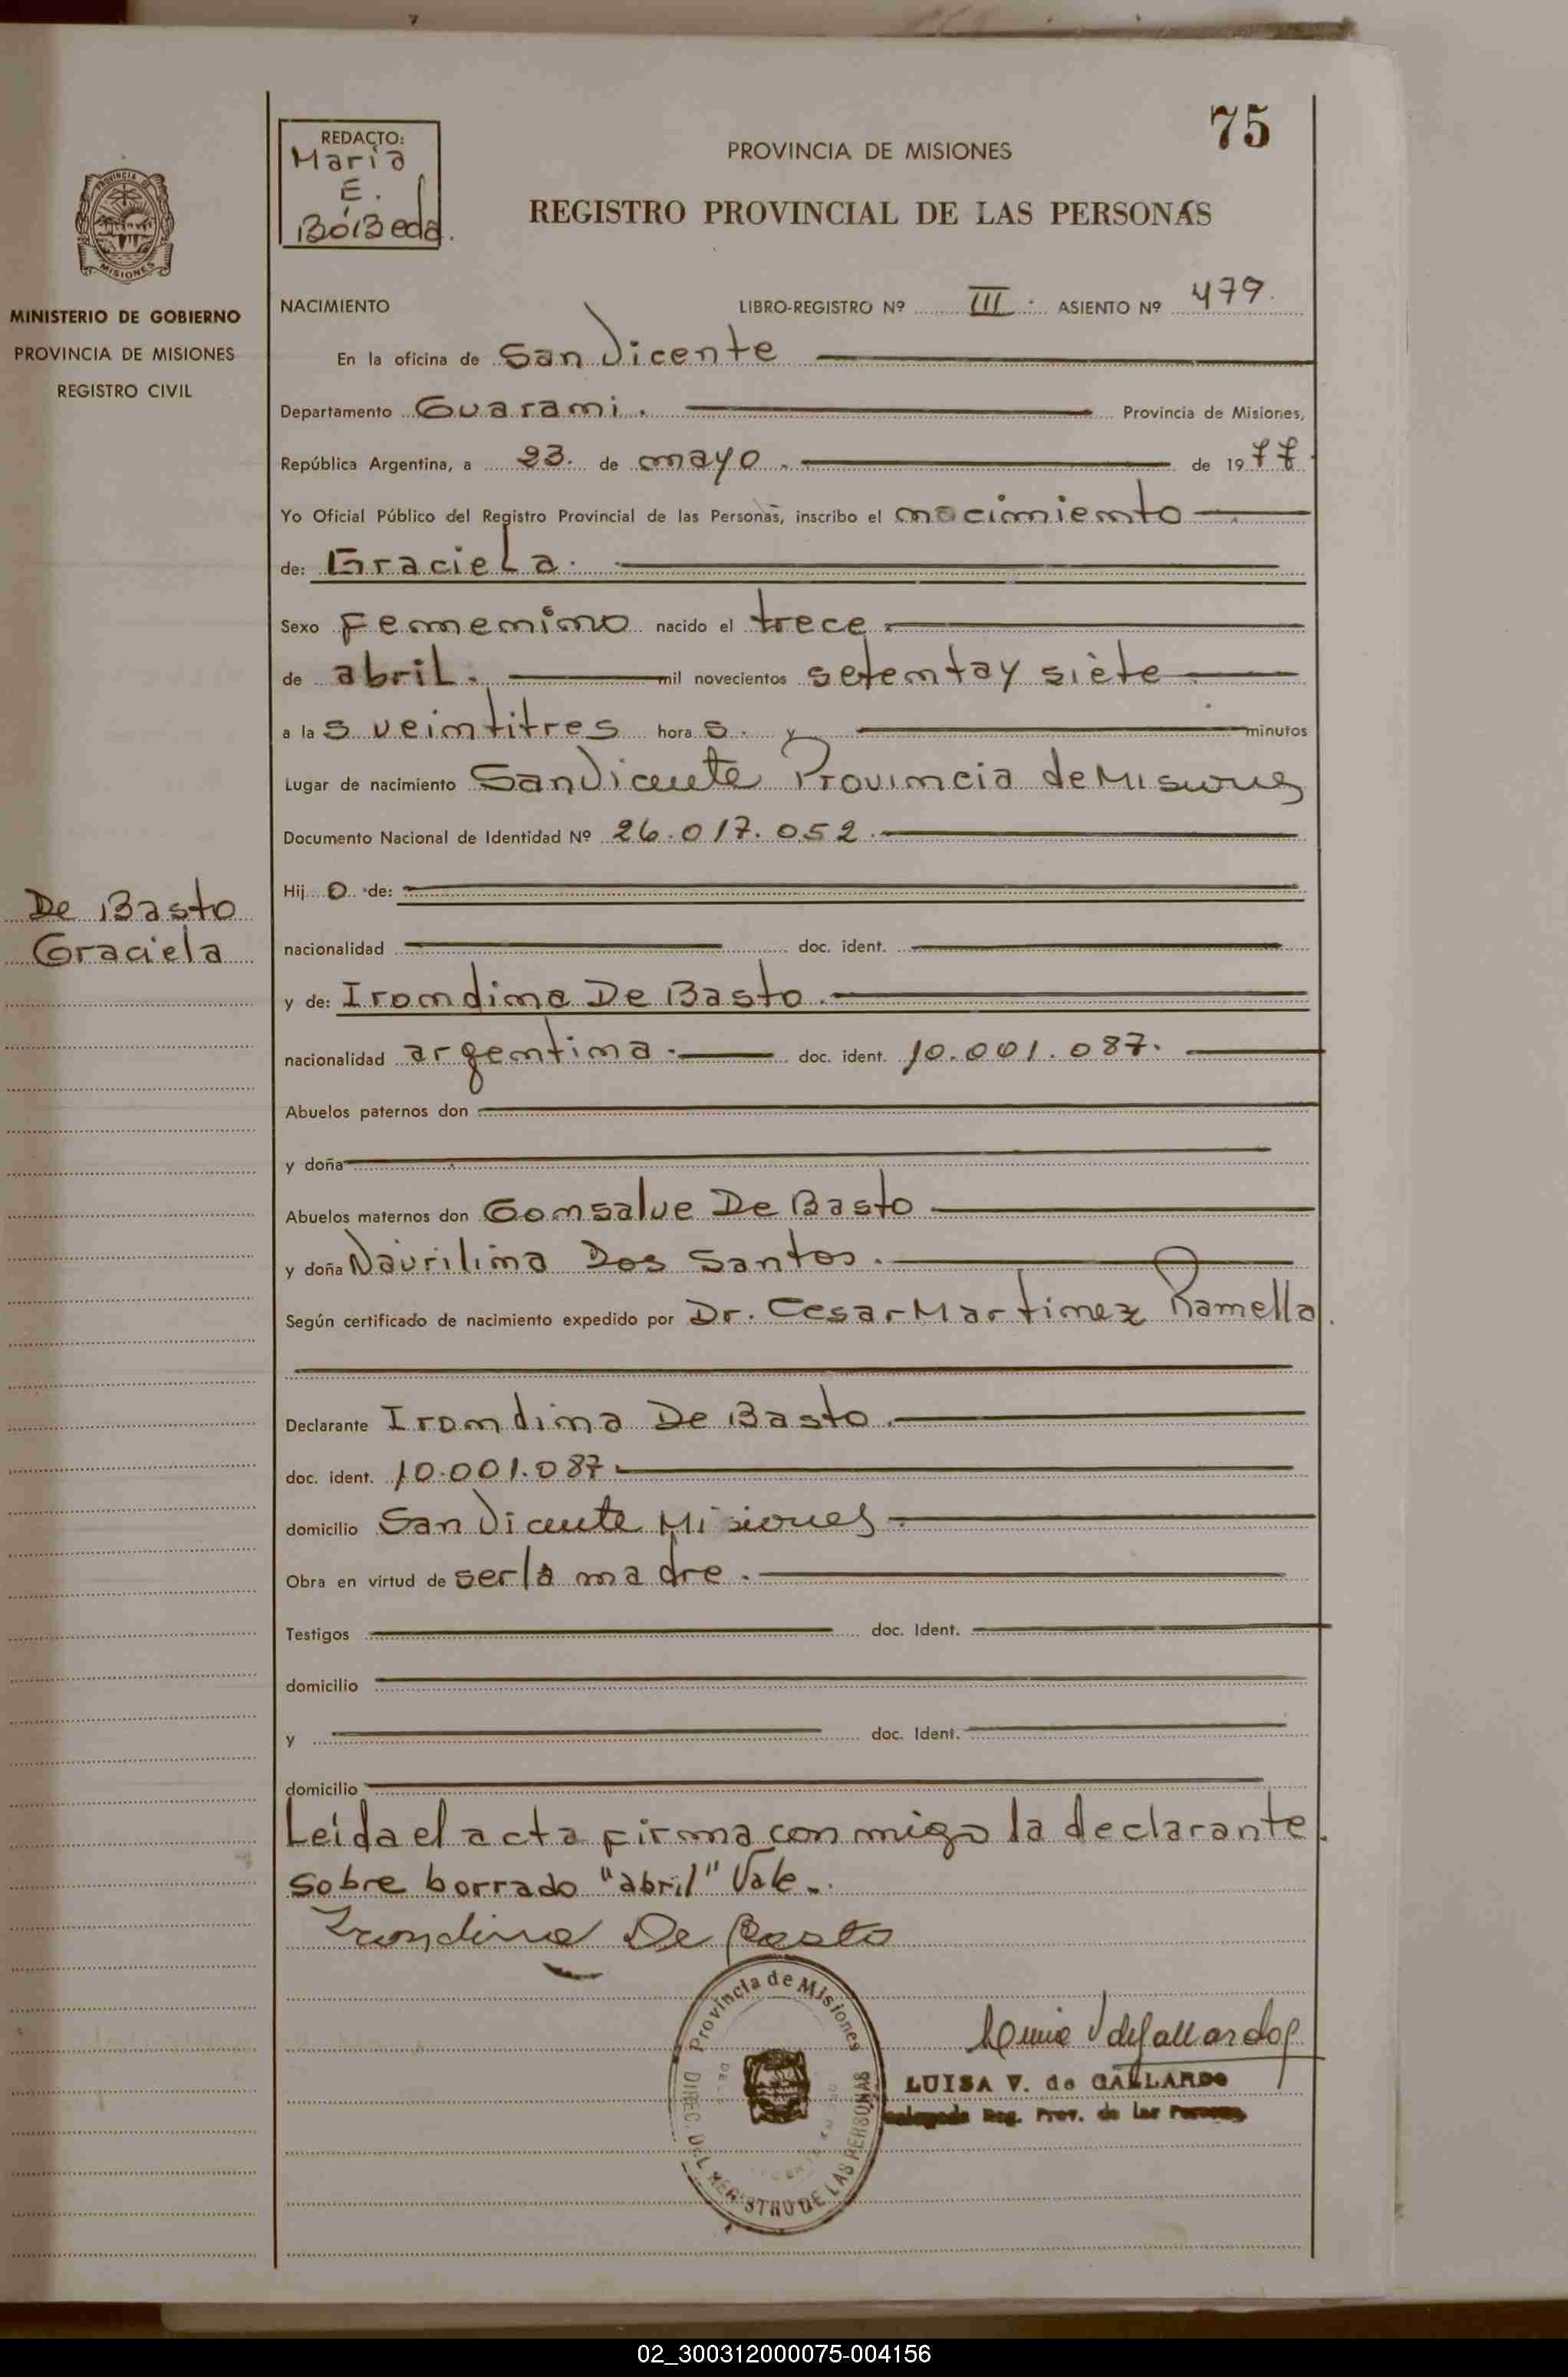 75
REDACTO:
Maria
E.
BóBeda.
PROVINCIA DE MISIONES
REGISTRO PROVINCIAL DE LAS PERSONAS
PROVINCIA DE
MISIONES
MINISTERIO DE GOBIERNO
PROVINCIA DE MISIONES
REGISTRO CIVIL
NACIMIENTO LIBRO-REGISTRO Nº III. ASIENTO Nº 479.
En la oficina de San Vicente
Departamento Guarami. Provincia de Misiones,
República Argentina, a 23. de mayo. de 1977
Yo Oficial Público del Registro Provincial de las Personas, inscribo el nacimiento
de: Graciela.
Sexo Femenino nacido el trece.
de abril. mil novecientos setentay siete
a las veintitres horas. y minutos
Lugar de nacimiento San Vicente Provincia de Misiones
Documento Nacional de Identidad Nº 26.017.052.
Hijo de:
nacionalidad doc. ident.
De Basto
Graciela
y de: Irondina De Basto.
nacionalidad argentina. doc. ident. 10.001.087.
Abuelos paternos don
y doña
Abuelos maternos don Gonsalve De Basto
y doña Naurilina Dos Santos.
Según certificado de nacimiento expedido por Dr. Cesar Martinez Ramella.
Declarante Irondina De Basto.
doc. ident. 10.001.087.
domicilio San Vicente Misiones.
Obra en virtud de ser la madre.
Testigos doc. Ident.
domicilio
y doc. Ident.
domicilio
Leída el acta firma con migo la declarante.
Sobre borrado "abril" Vale.
Irondina De Basto
Provincia de Misiones
DIREC. DEL REGISTRO DE LAS PERSONAS
LUISA V. de GALLARDO
Delegada Reg. Prov. de las Personas
02_300312000075-004156